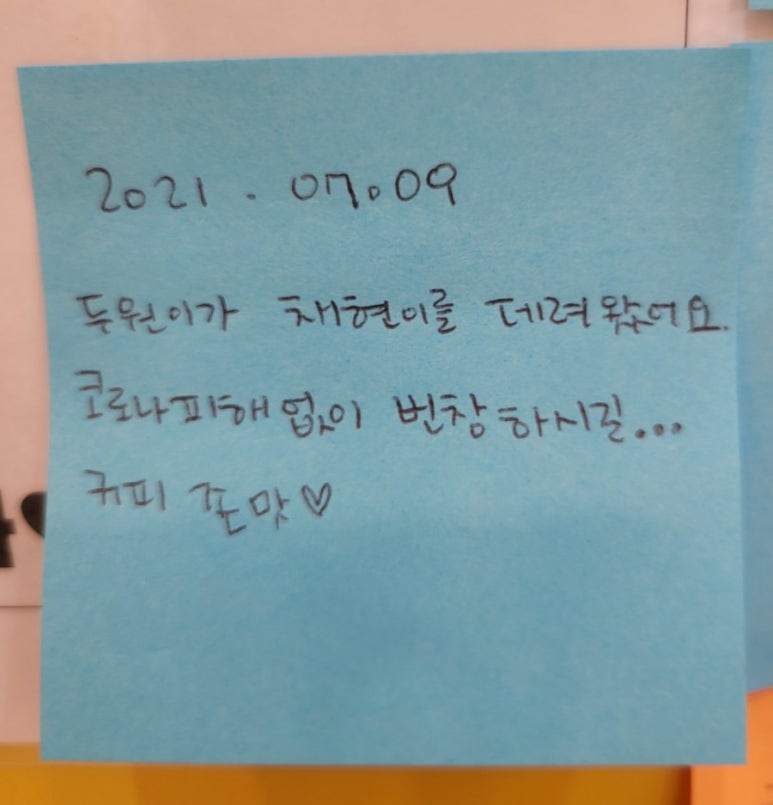 2021. 07.09
두원이가 채현이를 데려왔어요.
코로나피해없이 번창하시길...
커피 존맛♡